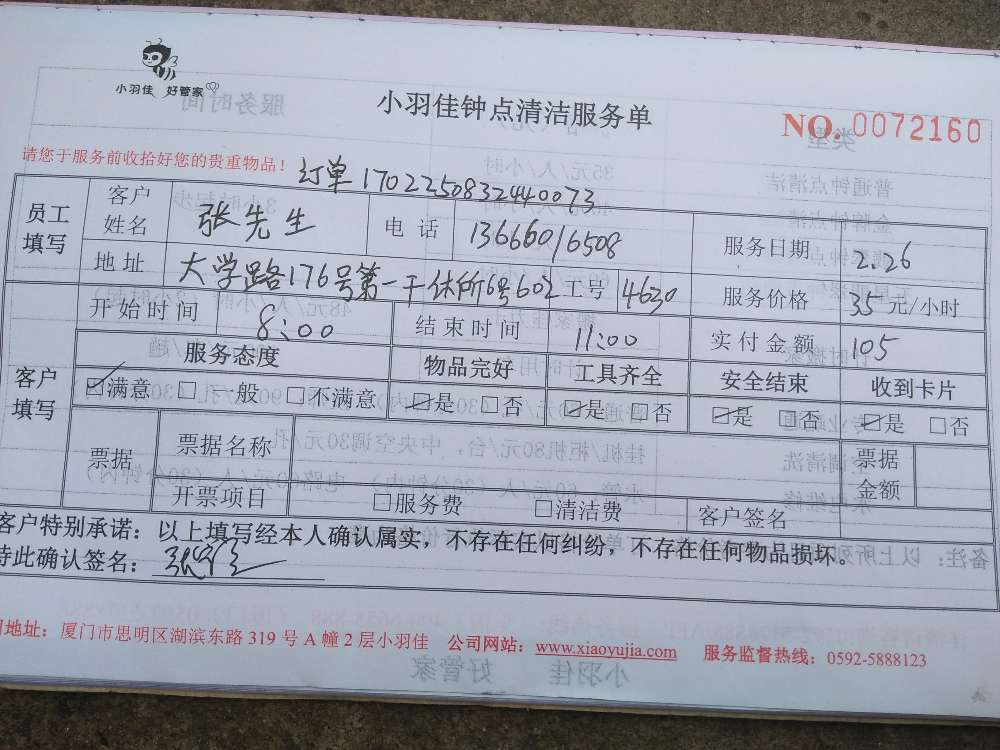 小羽佳 好管家
小羽佳钟点清洁服务单
NO. 0072160
请您于服务前收拾好您的贵重物品！ 订单1702250832440073
员工填写 客户姓名 张先生 电话 13666016508 服务日期 2.26
地址 大学路176号第一干休所6号602 工号 4630 服务价格 35 元/小时
客户填写 开始时间 8:00 结束时间 11:00 实付金额 105
服务态度 物品完好 工具齐全 安全结束 收到卡片
☑满意 □一般 □不满意 ☑是 □否 ☑是 □否 ☑是 □否 ☑是 □否
票据 票据名称 票据金额
开票项目 □服务费 □清洁费 客户签名
客户特别承诺：以上填写经本人确认属实，不存在任何纠纷，不存在任何物品损坏。
特此确认签名：
地址：厦门市思明区湖滨东路 319 号 A 幢 2 层小羽佳 公司网站：www.xiaoyujia.com 服务监督热线：0592-5888123